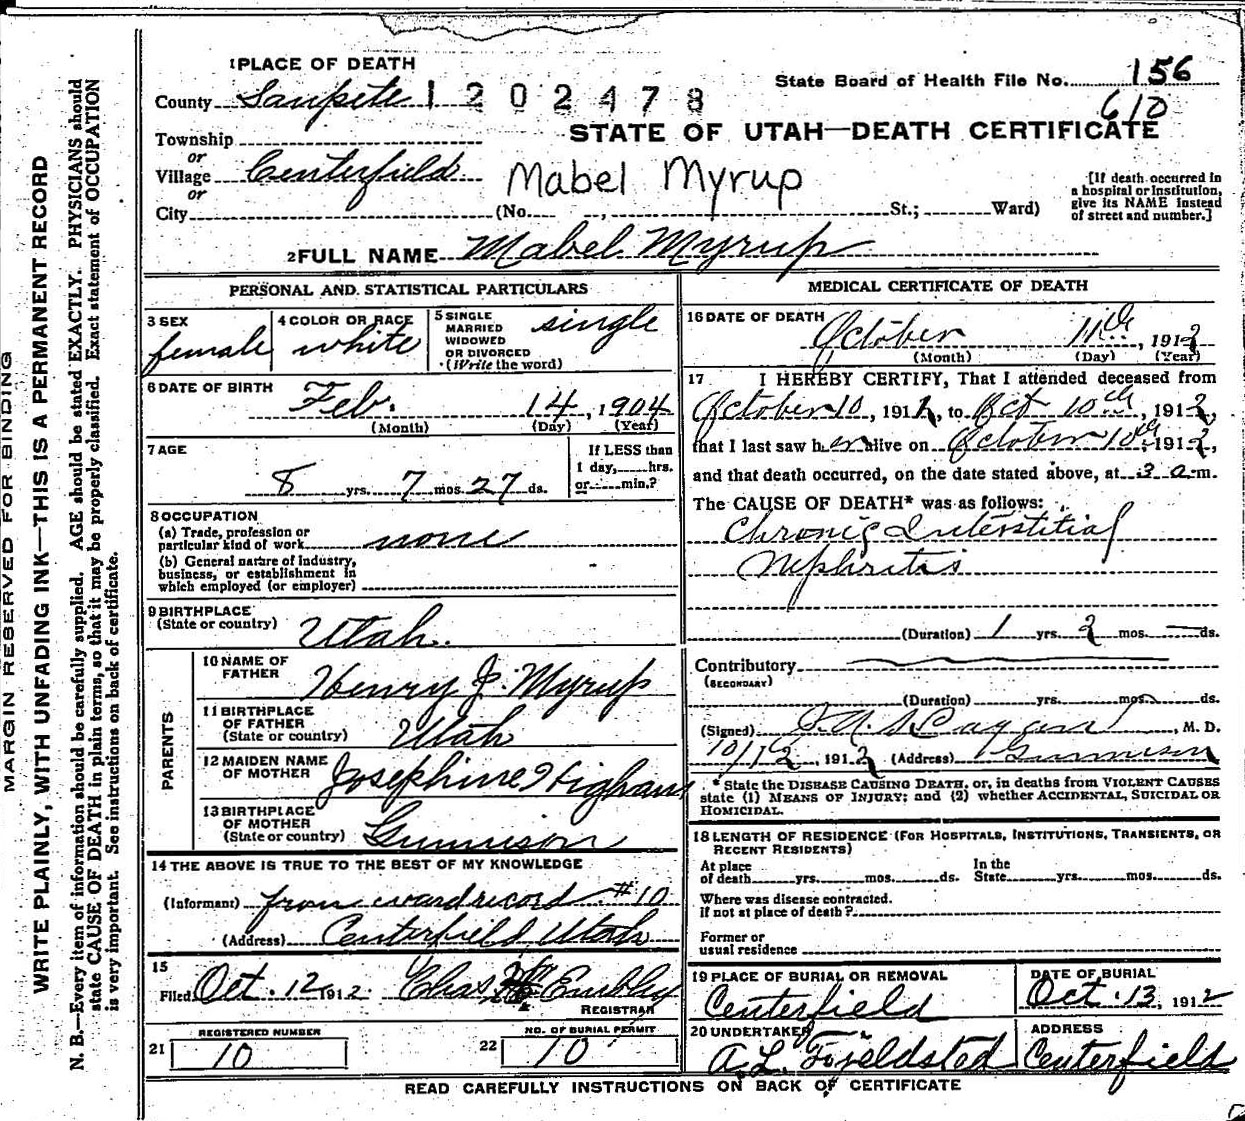 MARGIN RESERVED FOR BINDING
WRITE PLAINLY, WITH UNFADING INK—THIS IS A PERMANENT RECORD
N. B.—Every item of information should be carefully supplied. AGE should be stated EXACTLY. PHYSICIANS should
state CAUSE OF DEATH in plain terms, so that it may be properly classified. Exact statement of OCCUPATION
is very important. See instructions on back of certificate.
1 PLACE OF DEATH
County Sanpete 1 2 0 2 4 7 8
State Board of Health File No. 156
610
Township
or
STATE OF UTAH—DEATH CERTIFICATE
Village Centerfield
or
Mabel Myrup
City (No. , St.; Ward)
[If death occurred in
a hospital or institution,
give its NAME instead
of street and number.]
2 FULL NAME Mabel Myrup
PERSONAL AND STATISTICAL PARTICULARS
3 SEX
female
4 COLOR OR RACE
white
5 SINGLE
MARRIED
WIDOWED
OR DIVORCED
(Write the word)
single
6 DATE OF BIRTH
Feb. 14, 1904
(Month) (Day) (Year)
7 AGE
8 yrs. 7 mos. 27 ds.
If LESS than
1 day, hrs.
or min.?
8 OCCUPATION
(a) Trade, profession or
particular kind of work none
(b) General nature of industry,
business, or establishment in
which employed (or employer)
9 BIRTHPLACE
(State or country) Utah.
PARENTS
10 NAME OF
FATHER Henry J. Myrup
11 BIRTHPLACE
OF FATHER
(State or country) Utah
12 MAIDEN NAME
OF MOTHER Josephine Higham
13 BIRTHPLACE
OF MOTHER
(State or country) Gunnison
14 THE ABOVE IS TRUE TO THE BEST OF MY KNOWLEDGE
(Informant) from ward record #10
(Address) Centerfield Utah
15
Filed Oct. 12 1912. Chas Embley
REGISTRAR
REGISTERED NUMBER
21 10
NO. OF BURIAL PERMIT
22 10
MEDICAL CERTIFICATE OF DEATH
16 DATE OF DEATH
October 11th, 1912
(Month) (Day) (Year)
17 I HEREBY CERTIFY, That I attended deceased from
October 10, 1912, to Oct 10th, 1912,
that I last saw her alive on October 10th, 1912,
and that death occurred, on the date stated above, at 3 a. m.
The CAUSE OF DEATH* was as follows:
Chronic Interstitial
Nephritis
(Duration) 1 yrs. 2 mos. ds.
Contributory
(SECONDARY)
(Duration) yrs. mos. ds.
(Signed) , M. D.
10/12, 1912 (Address) Gunnison
* State the DISEASE CAUSING DEATH, or, in deaths from VIOLENT CAUSES
state (1) MEANS OF INJURY; and (2) whether ACCIDENTAL, SUICIDAL OR
HOMICIDAL.
18 LENGTH OF RESIDENCE (FOR HOSPITALS, INSTITUTIONS, TRANSIENTS, OR
RECENT RESIDENTS)
At place
of death yrs. mos. ds.
In the
State yrs. mos. ds.
Where was disease contracted.
If not at place of death?
Former or
usual residence
19 PLACE OF BURIAL OR REMOVAL
Centerfield
DATE OF BURIAL
Oct. 13, 1912
20 UNDERTAKER
A. L.
ADDRESS
Centerfield
READ CAREFULLY INSTRUCTIONS ON BACK OF CERTIFICATE